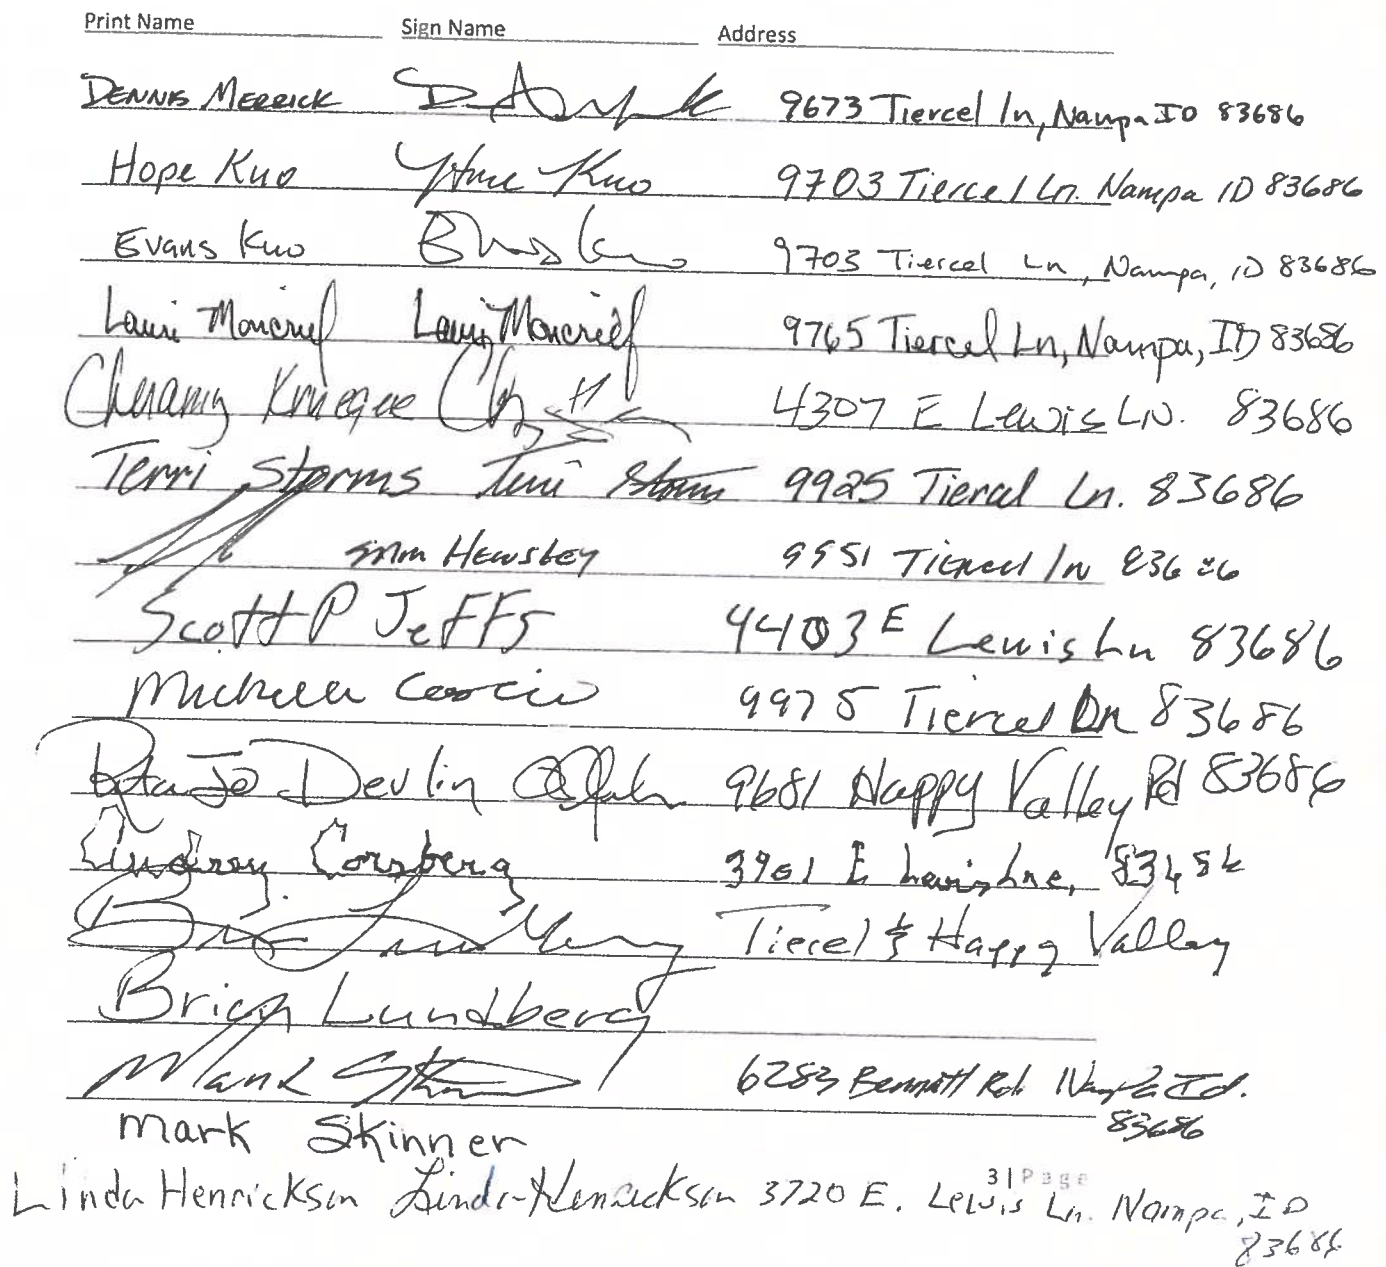 Print Name Sign Name Address
DENNIS MERRICK 9673 Tiercel ln, Nampa ID 83686
Hope Kuo Hope Kuo 9703 Tiercel Ln. Nampa ID 83686
Evans Kuo 9703 Tiercel Ln, Nampa, ID 83686
Lauri Moncrief Lauri Moncrief 9765 Tiercel Ln, Nampa, ID 83686
4307 E Lewis LN. 83686
Terri Storms Terri Storms 9925 Tiercel Ln. 83686
Tiercel ln
Scott P JeFFs 4403 E Lewis Ln 83686
9975 Tiercel 83686
Devlin 9681 Happy Valley Rd 83686
E Lewis Lne,
Tiercel & Happy Valley
Brian Lundberg
Mark Skinner 6283 Bennett Rd. Nampa Id.
83686
Mark Skinner
3 | Page
Linda Henrickson Linda Henrickson 3720 E. Lewis Ln. Nampa, ID
83686